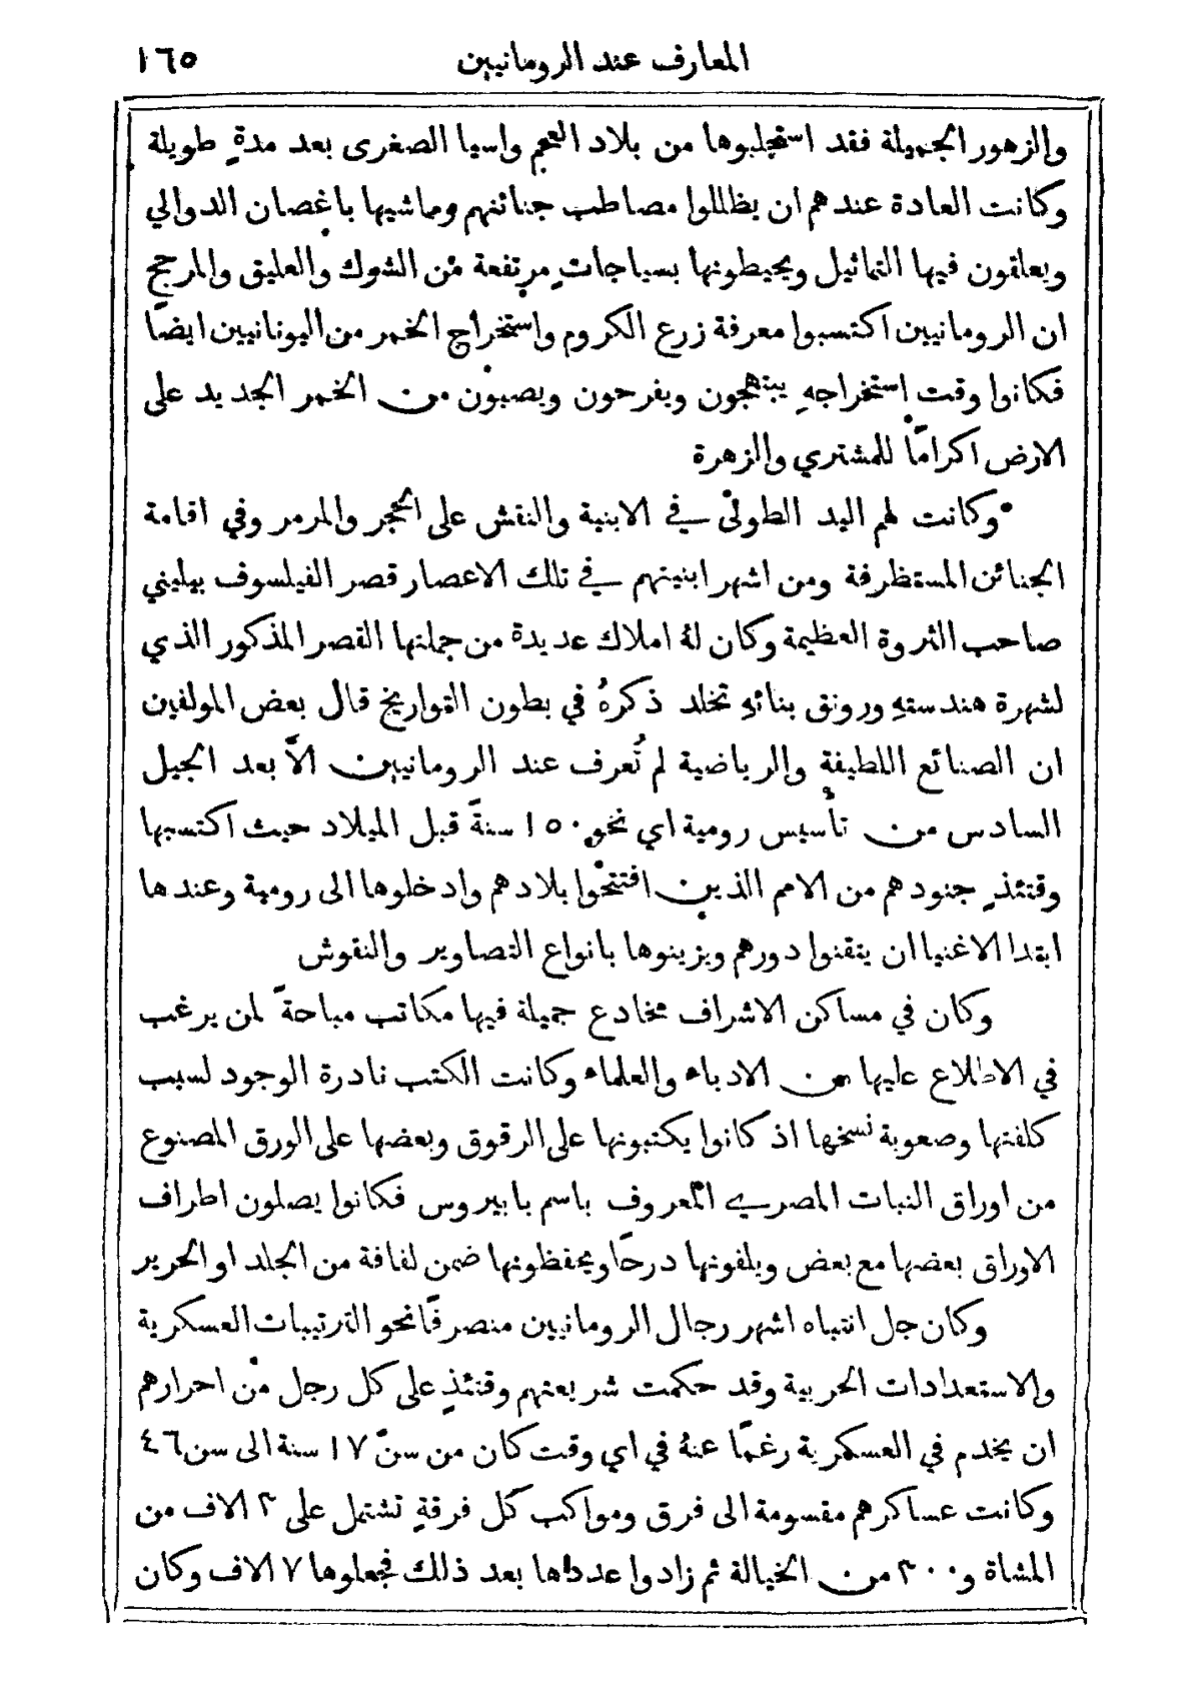 المعارف عند الرومانيين ١٦٥
والزهور الجميلة فقد استجلبوها من بلاد العجم واسيا الصغرى بعد مدةٍ طويلة
وكانت العادة عندهم ان يظللوا مصاطب جنائنهم ومماشيها باغصان الدوالي
ويعلقون فيها التماثيل ويحيطونها بسياجاتٍ مرتفعة من الشوك والعليق والمرجح
ان الرومانيين اكتسبوا معرفة زرع الكروم واستخراج الخمر من اليونانيين ايضًا
فكانوا وقت استخراجهِ يبتهجون ويفرحون ويصبون من الخمر الجديد على
الارض اكرامًا للمشتري والزهرة
وكانت لهم اليد الطولى في الابنية والنقش على الحجر والمرمر وفي اقامة
الجنائن المستظرفة ومن اشهر ابنيتهم في تلك الاعصار قصر الفيلسوف بيليني
صاحب الثروة العظيمة وكان لهُ املاك عديدة من جملتها القصر المذكور الذي
لشهرة هندستهِ ورونق بنائهِ تخلد ذكرهُ في بطون التواريخ قال بعض المولفين
ان الصنائع اللطيفة والرياضية لم تُعرف عند الرومانيين الَّا بعد الجيل
السادس من تأسيس رومية اي نحو ١٥٠ سنةً قبل الميلاد حيث اكتسبها
وقتئذٍ جنودهم من الامم الذين افتتحوا بلادهم وادخلوها الى رومية وعندها
ابتدا الاغنيا ان يتقنوا دورهم ويزينوها بانواع التصاوير والنقوش
وكان في مساكن الاشراف مخادع جميلة فيها مكاتب مباحةً لمن يرغب
في الاطلاع عليها من الادباء والعلماء وكانت الكتب نادرة الوجود لسبب
كلفتها وصعوبة نسخها اذ كانوا يكتبونها على الرقوق وبعضها على الورق المصنوع
من اوراق النبات المصري المعروف باسم بابيروس فكانوا يصلون اطراف
الاوراق بعضها مع بعض ويلفونها درجًا ويحفظونها ضمن لفافة من الجلد او الحرير
وكان جل انتباه اشهر رجال الرومانيين منصرفًا نحو الترتيبات العسكرية
والاستعدادات الحربية وقد حكمت شريعتهم وقتئذٍ على كل رجل من احرارهم
ان يخدم في العسكرية رغمًا عنهُ في اي وقت كان من سنّ ١٧ سنة الى سن ٤٦
وكانت عساكرهم مقسومة الى فرق ومواكب كل فرقةٍ تشتمل على ٣ الاف من
المشاة و ٣٠٠ من الخيالة ثم زادوا عددها بعد ذلك فجعلوها ٧ الاف وكان